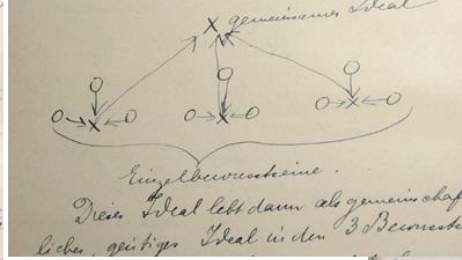 gemeinsames Ideal
Einzelbewusstseine.
Dieses Ideal lebt dann als gemeinschaf
liches, geistiges Ideal in den 3 Bewusst